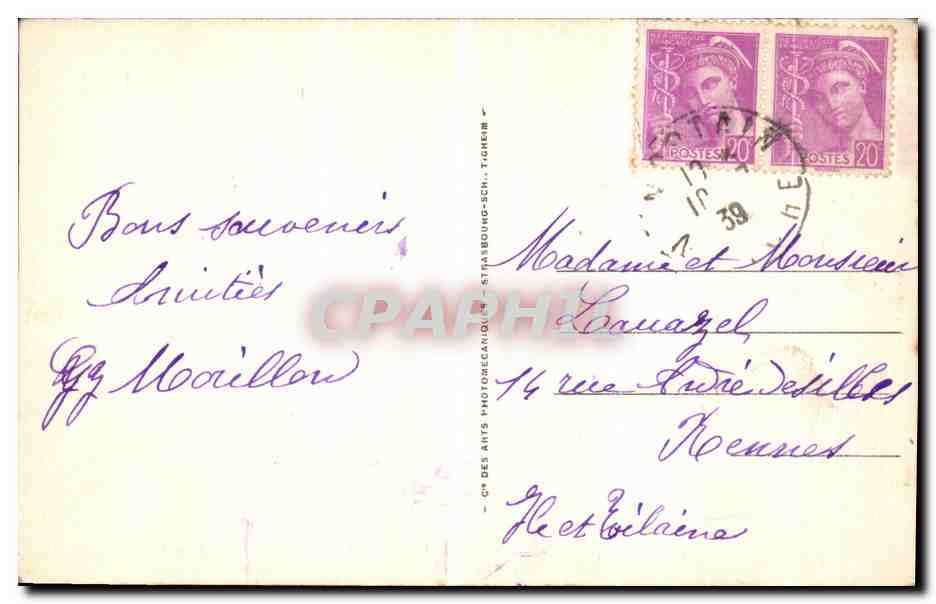 Bons souvenirs
Amitiés
Morillon
- Cie DES ARTS PHOTOMECANIQUES - STRASBOURG-SCH., TIGHEIM -
REPUBLIQUE FRANÇAISE
POSTES 20
REPUBLIQUE FRANÇAISE
POSTES 20
39
Madame et Monsieur
14 rue André Desilles
Rennes
Ile et Vilaine
CPAPHIL